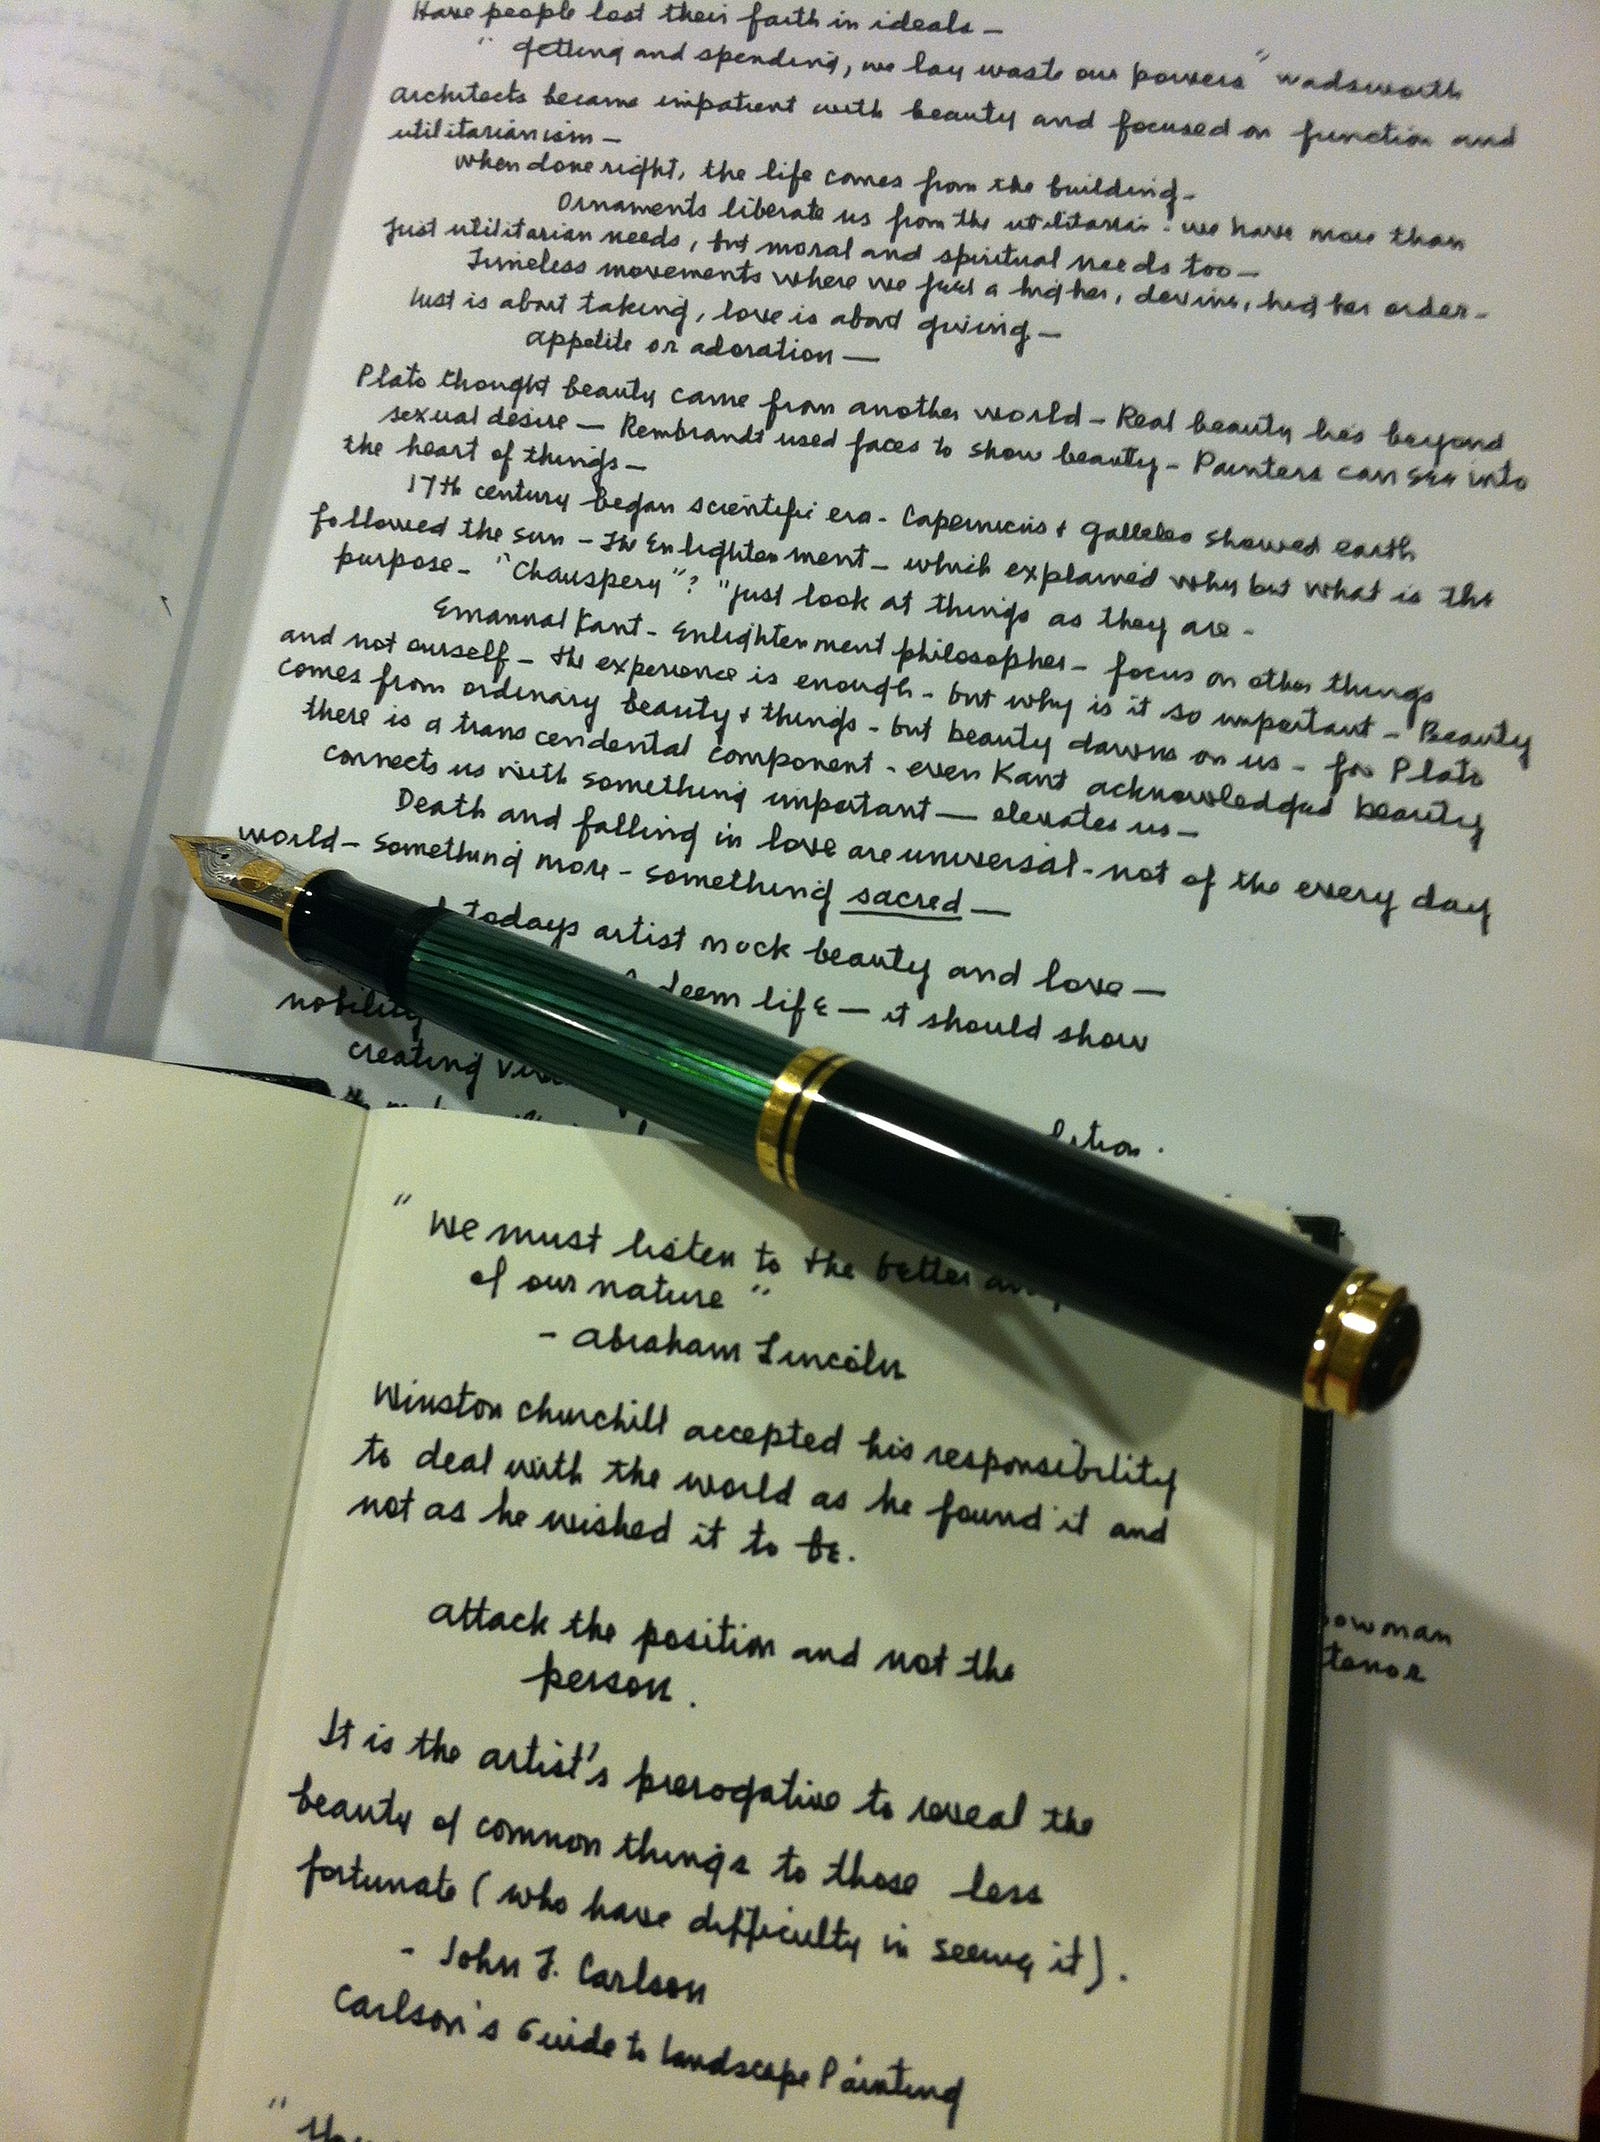 Have people lost their faith in ideals —
" getting and spending, we lay waste our powers " wadsworth
architects became impatient with beauty and focused on function and
utilitarianism —
when done right, the life comes from the building -
Ornaments liberate us from the utilitarian - we have more than
Just utilitarian needs, but moral and spiritual needs too —
Timeless movements where we feel a higher, devine, higher order -
lust is about taking, love is about giving —
appetite or adoration —
Plato thought beauty came from another world - Real beauty lies beyond
sexual desire — Rembrandt used faces to show beauty - Painters can see into
the heart of things —
17th century began scientific era - Capernicus + Galleleo showed earth
followed the sun - The Enlightenment - which explained why but what is the
purpose - "Chauspery"? "just look at things as they are -
Emanual Kant - Enlightenment philosopher - focus on other things
and not ourself - the experience is enough - but why is it so important - Beauty
comes from ordinary beauty + things - but beauty dawns on us - for Plato
there is a transcendental component - even Kant acknowledged beauty
connects us with something important — elevates us —
Death and falling in love are universal - not of the every day
world - something more - something sacred —
todays artist mock beauty and love —
life — it should show
nobility
creating
"We must listen to the better
of our nature "
- Abraham Lincoln
Winston Churchill accepted his responsibility
to deal with the world as he found it and
not as he wished it to be.
attack the position and not the
person.
It is the artist's prerogative to reveal the
beauty of common things to those less
fortunate ( who have difficulty in seeing it ).
- John F. Carlson
Carlson's Guide to Landscape Painting